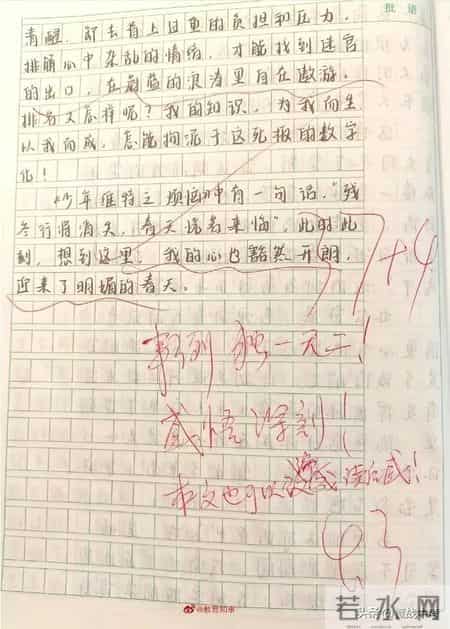 批语
清醒。卸去肩上过重的负担和压力，
排解心中杂乱的情绪，才能找到迷宫
的出口，在蔚蓝的浪涛里自在遨游。
排名又怎样呢？我的知识，为我而生
以我而成，怎能拘泥于这死板的数字
化！
《少年维特之烦恼》中有一句话，“残
冬行将消失，春天读者来临”，此时此
刻，想到这里，我的心也豁然开朗，
迎来了明媚的春天。
37+4
独一无二！
感悟深刻！
本文也可以读后感！
43
@教育知事
头条
若水网